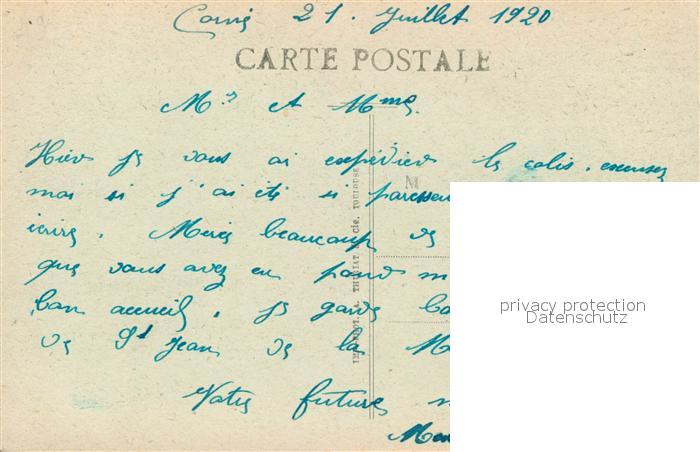 21. Juillet 1920
CARTE POSTALE
Mr et Mme.
Hier je vous ai expédier le colis. excusez
moi si j'ai été si paresseu
écrire. Merci beaucoup de
que vous avez eu pour m
bon accueil, je garde bo
de St Jean de la M
Votre future
M
THUILIAT & Cie, TOULOUSE
privacy protection
Datenschutz